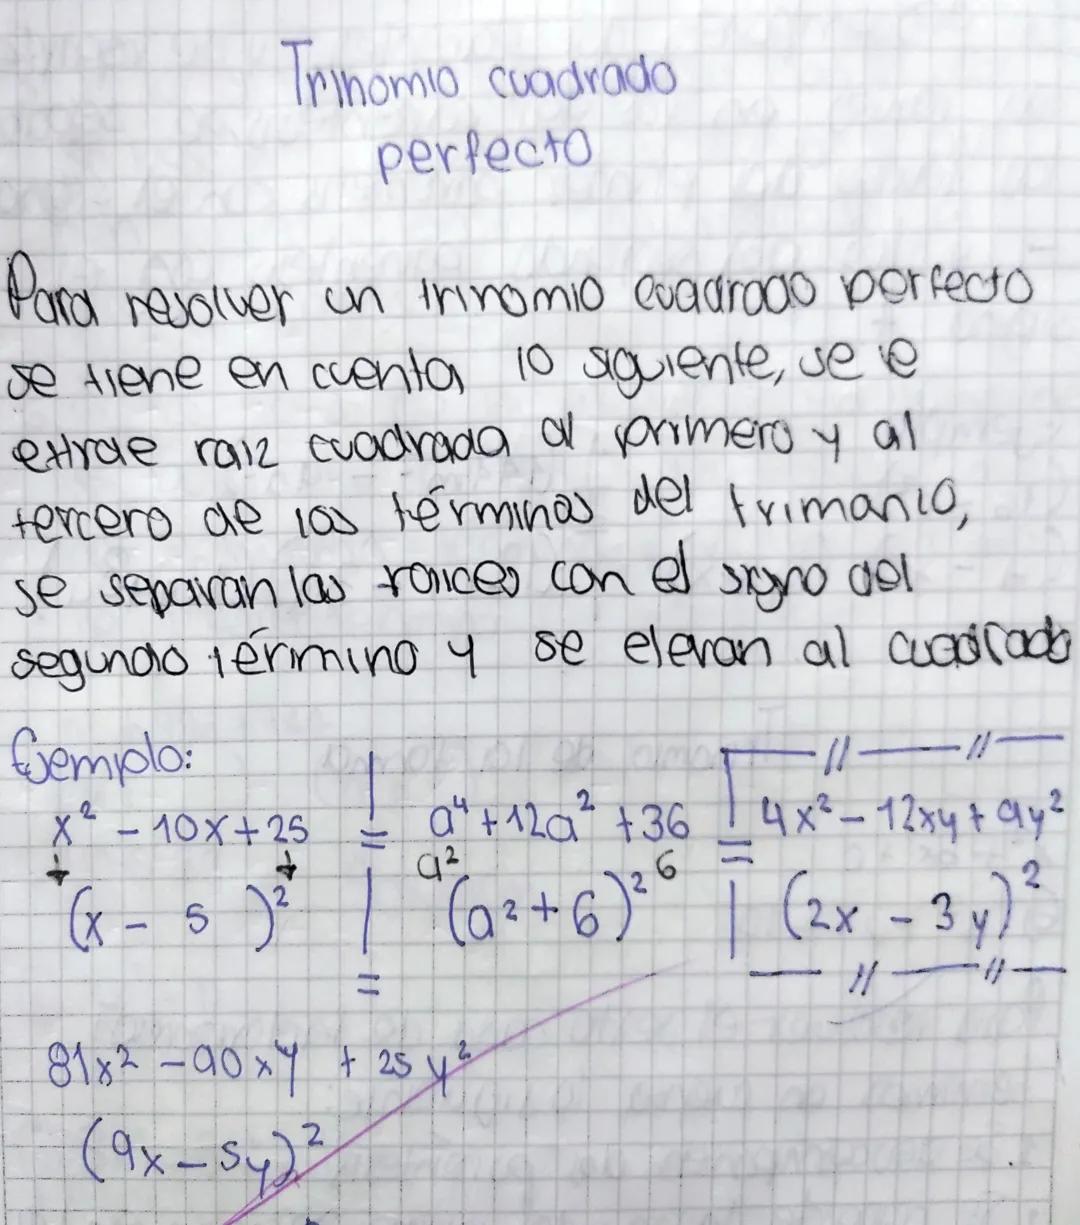 Trinomio cuadrado
perfecto
Para resolver un trinomio cuadrado perfecto
se tiene en cuenta, lo siguiente, se le
extrae raiz cuadrada al primero y al
tercero de los términos del trimanio,
se separan las raices con el signo del
segundo término y se elevan al cuadrado
Ejemplo:
x² - 10x + 25
(x - 5 )²
a⁴ + 12a² + 36
a² 6
(a² + 6)²
4x² - 12xy + 9y²
(2x - 3y)²
81x² - 90xy + 25y²
(9x - 5y)²